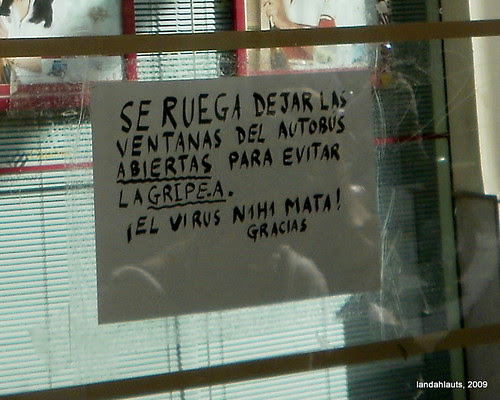 SE RUEGA DEJAR LAS
VENTANAS DEL AUTOBUS
ABIERTAS PARA EVITAR
LA GRIPE A.
¡EL VIRUS N1H1 MATA!
GRACIAS
landahlauts, 2009